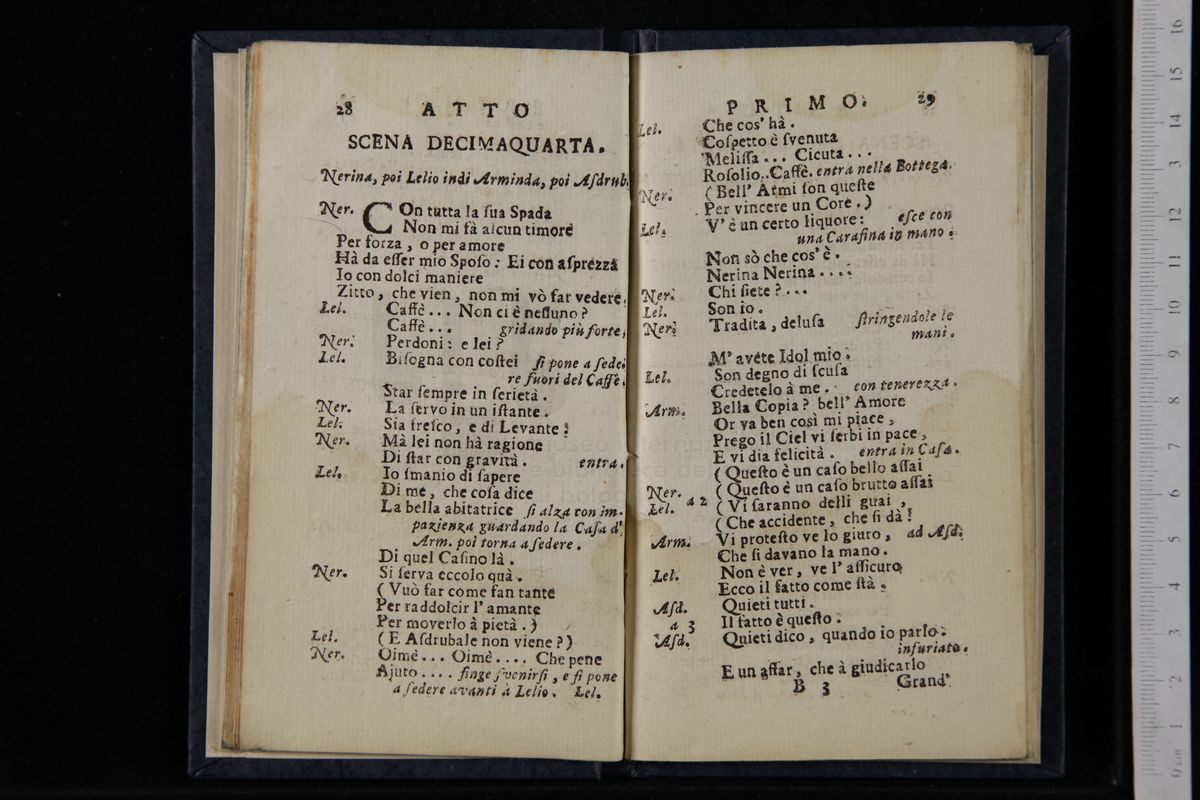 28 ATTO
SCENA DECIMAQUARTA.
Nerina, poi Lelio indi Arminda, poi Aſdrub.
Ner. COn tutta la ſua Spada
Non mi fà alcun timore
Per forza, o per amore
Hà da eſſer mio Spoſo: Ei con aſprezza
Io con dolci maniere
Zitto, che vien, non mi vò far vedere.
Lel. Caffè... Non ci è neſſuno?
Caffè... gridando più forte.
Ner. Perdoni: e lei?
Lel. Biſogna con coſtei ſi pone a ſede-
re fuori del Caffè.
Star ſempre in ſerietà.
Ner. La ſervo in un iſtante.
Lel. Sia freſco, e di Levante:
Ner. Mà lei non hà ragione
Di ſtar con gravità. entra.
Lel. Io ſmanio di ſapere
Di me, che coſa dice
La bella abitatrice ſi alza con im-
pazienza guardando la Caſa d'
Arm. poi torna a ſedere.
Di quel Caſino là.
Ner. Si ſerva eccolo quà.
(Vuó far come fan tante
Per raddolcir l' amante
Per moverlo à pietà.)
Lel. (E Aſdrubale non viene?)
Ner. Oimè... Oimè.... Che pene
Ajuto.... finge ſvenirſi, e ſi pone
a ſedere avanti à Lelio. Lel.
PRIMO. 29
Lel. Che cos' hà.
Coſpetto è ſvenuta
Meliſſa... Cicuta...
Roſolio..Caffè. entra nella Bottega.
Ner. (Bell' Armi ſon queſte
Per vincere un Core.)
Lel. V' è un certo liquore: eſce con
una Carafina in mano.
Non sò che cos' è.
Nerina Nerina....
Ner. Chi ſiete?...
Lel. Son io.
Ner. Tradita, deluſa ſtringendole le
mani.
M' avéte Idol mio.
Lel. Son degno di ſcuſa
Credetelo à me. con tenerezza.
Arm. Bella Copia? bell' Amore
Or va ben così mi piace,
Prego il Ciel vi ſerbi in pace,
E vi dia felicità. entra in Caſa.
(Queſto è un caſo bello aſſai
Ner. (Queſto è un caſo brutto aſſai
Lel. a 2 (Vi ſaranno delli guai,
(Che accidente, che ſi dà!
Arm. Vi proteſto ve lo giuro, ad Aſd.
Che ſi davano la mano.
Lel. Non è ver, ve l' aſſicuro
Ecco il fatto come ſtà.
Aſd. Quieti tutti.
a 3 Il fatto è queſto.
Aſd. Quieti dico, quando io parlo.
infuriato.
E un affar, che à giudicarlo
B 3 Grand'
16
15
14
13
12
11
10
9
8
7
6
5
4
3
2
1
0 cm